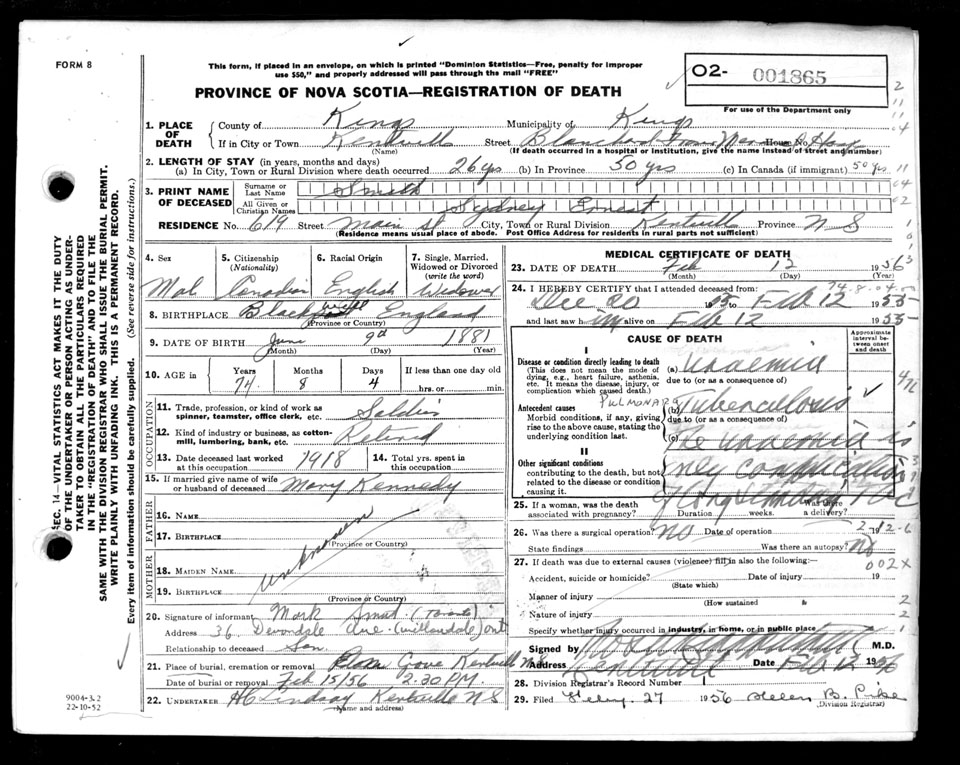 FORM 8
This form, if placed in an envelope, on which is printed "Dominion Statistics—Free, penalty for improper
use $50," and properly addressed will pass through the mail "FREE"
PROVINCE OF NOVA SCOTIA—REGISTRATION OF DEATH
02- 001865
For use of the Department only
1. PLACE OF DEATH
County of Kings Municipality of Kings
If in City or Town Kentville Street House No. Hosp
(Name) (If death occurred in a hospital or institution, give the name instead of street and number)
2. LENGTH OF STAY (in years, months and days)
(a) In City, Town or Rural Division where death occurred 26 yrs (b) In Province 50 yrs (c) In Canada (if immigrant) 50 yrs
3. PRINT NAME OF DECEASED
Surname or Last Name Smith
All Given or Christian Names Sydney Ernest
RESIDENCE No. 619 Street Main St City, Town or Rural Division Kentville Province N S
(Residence means usual place of abode. Post Office Address for residents in rural parts not sufficient)
4. Sex
Mal
5. Citizenship (Nationality)
Canadian
6. Racial Origin
English
7. Single, Married, Widowed or Divorced (write the word)
Widower
8. BIRTHPLACE England
(Province or Country)
9. DATE OF BIRTH June 9th 1881
(Month) (Day) (Year)
10. AGE in Years Months Days If less than one day old
74 8 4 hrs. or min.
OCCUPATION
11. Trade, profession, or kind of work as spinner, teamster, office clerk, etc. Soldier
12. Kind of industry or business, as cotton-mill, lumbering, bank, etc. Retired
13. Date deceased last worked at this occupation 1918
14. Total yrs. spent in this occupation
15. If married give name of wife or husband of deceased Mary Kennedy
FATHER
16. Name
17. Birthplace
(Province or Country)
unknown
MOTHER
18. Maiden Name
19. Birthplace
(Province or Country)
20. Signature of informant Mark
Address 36 Devondale Ave. (Willowdale) Ont
Relationship to deceased Son
21. Place of burial, cremation or removal Grove Kentville N S
Date of burial or removal Feb 15/56 2.30 P.M.
22. UNDERTAKER H C Lindsay Kentville N S
(Name and address)
MEDICAL CERTIFICATE OF DEATH
23. DATE OF DEATH Feb 12 1956
(Month) (Day) (Year)
74.8.04.
24. I HEREBY CERTIFY that I attended deceased from:
Dec 20 to Feb 12 1955
and last saw him alive on Feb 12 1955
CAUSE OF DEATH
Approximate interval between onset and death
I
Disease or condition directly leading to death
(This does not mean the mode of dying, e.g., heart failure, asthenia, etc. It means the disease, injury, or complication which caused death.)
(a) Uraemia
due to (or as a consequence of)
PULMONARY
Antecedent causes
Morbid conditions, if any, giving rise to the above cause, stating the underlying condition last.
(b) Tuberculosis
due to (or as a consequence of)
(c) The uraemia is
II
Other significant conditions
contributing to the death, but not related to the disease or condition causing it.
only complication
25. If a woman, was the death associated with pregnancy? Duration weeks. Was there a delivery?
26. Was there a surgical operation? no Date of operation
State findings Was there an autopsy? No
002X
27. If death was due to external causes (violence) fill in also the following:
Accident, suicide or homicide? Date of injury 19
(State which)
Manner of injury
(How sustained)
Nature of injury
Specify whether injury occurred in industry, in home, or in public place
Signed by M.D.
Address Kentville Date Feb 12 1956
28. Division Registrar's Record Number 1
29. Filed Feby. 27 1956 Helen B.
(Division Registrar)
SEC. 14—VITAL STATISTICS ACT MAKES IT THE DUTY
OF THE UNDERTAKER OR PERSON ACTING AS UNDER-
TAKER TO OBTAIN ALL THE PARTICULARS REQUIRED
IN THE "REGISTRATION OF DEATH" AND TO FILE THE
SAME WITH THE DIVISION REGISTRAR WHO SHALL ISSUE THE BURIAL PERMIT.
WRITE PLAINLY WITH UNFADING INK. THIS IS A PERMANENT RECORD.
Every item of information should be carefully supplied. (See reverse side for instructions.)
9004-3.2
22-10-52